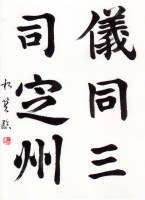 儀同三
司定州